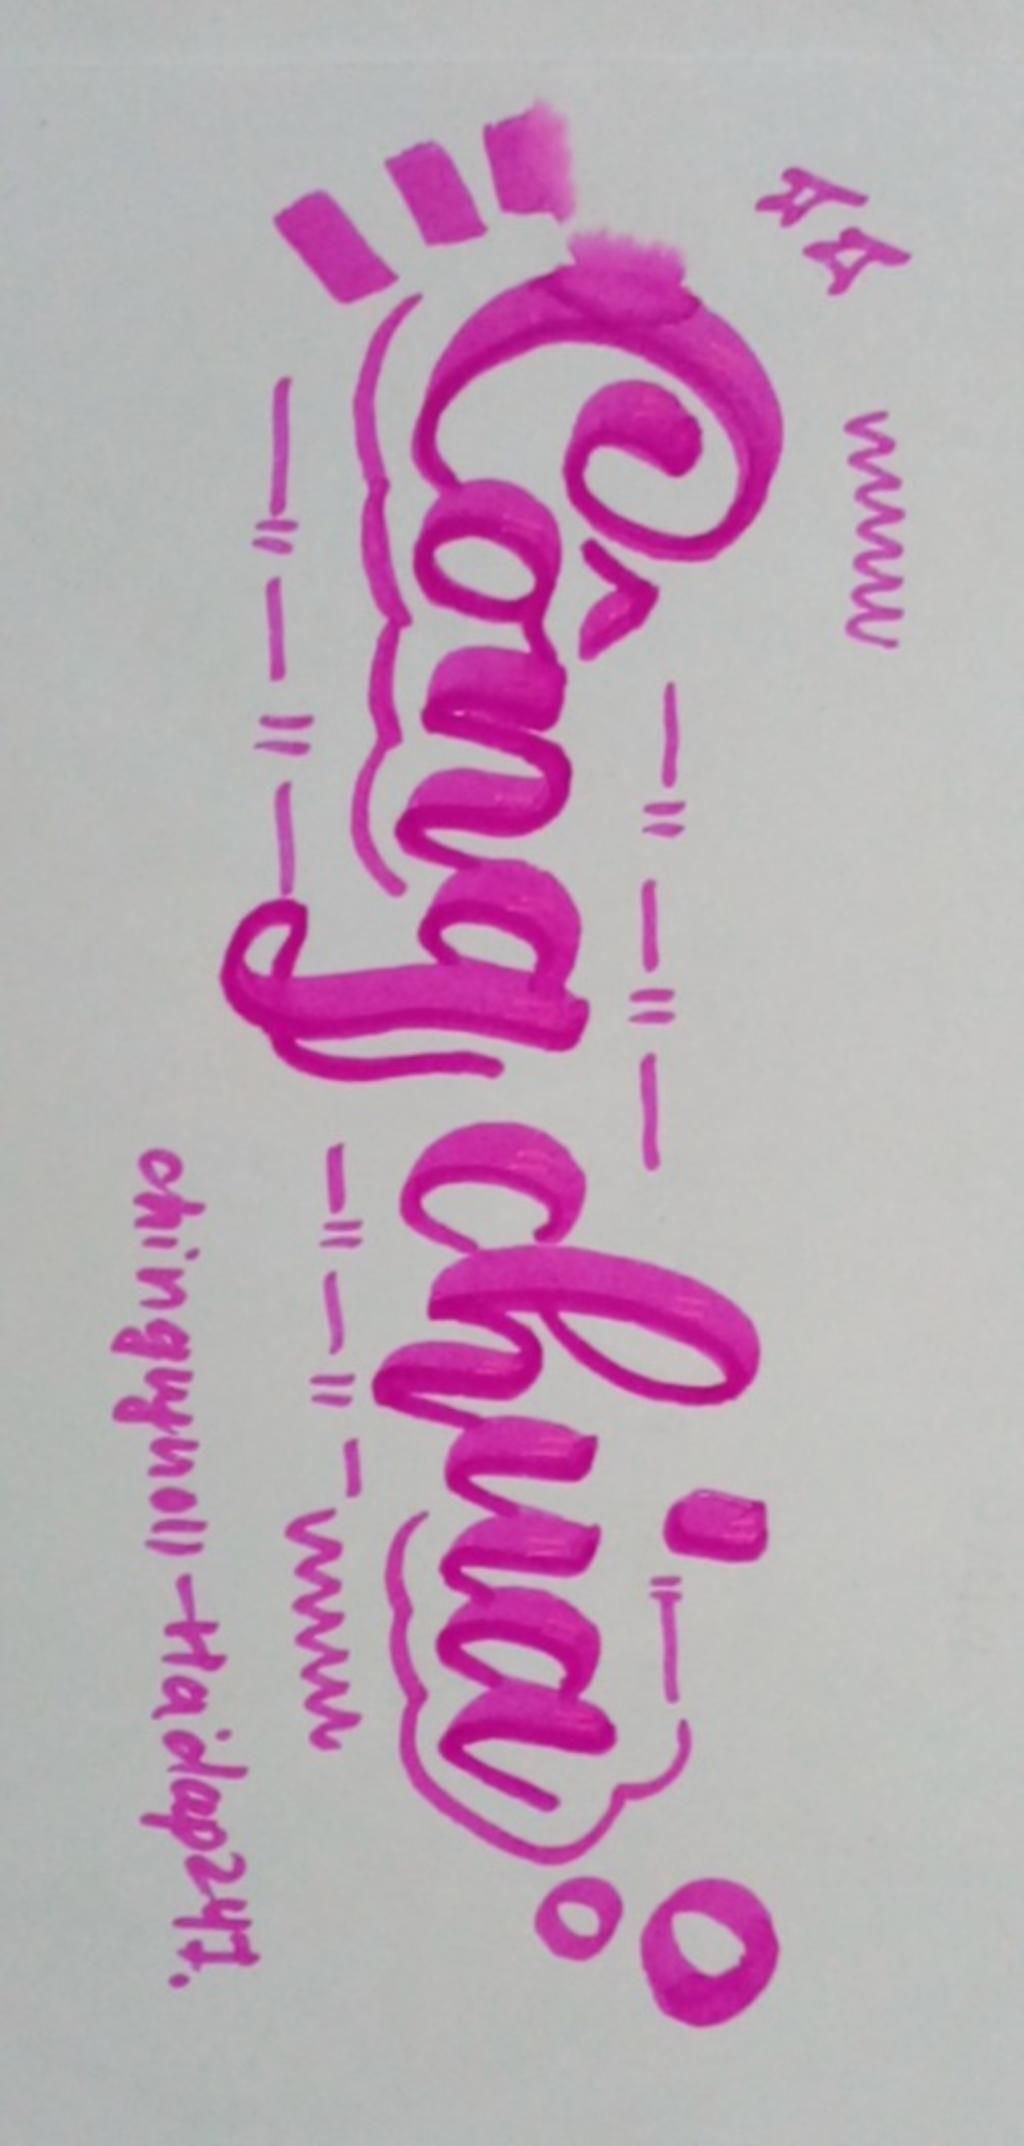 Công chúa
chinguyn011 - Hoidap247.